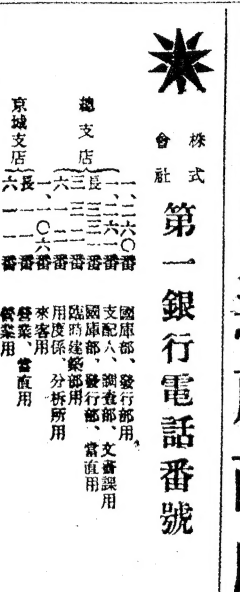 株式會社
第一銀行電話番號
總支店
一、二六〇番 國庫部、發行部用
一、二六一番 支配人、調査部、文書課用
長三三一番 國庫部、發行部、當直用
番 臨時建築部用
番 用度係、分析所用
京城支店
一、一〇六番 來客用
長 番 營業、當直用
六 番 營業用